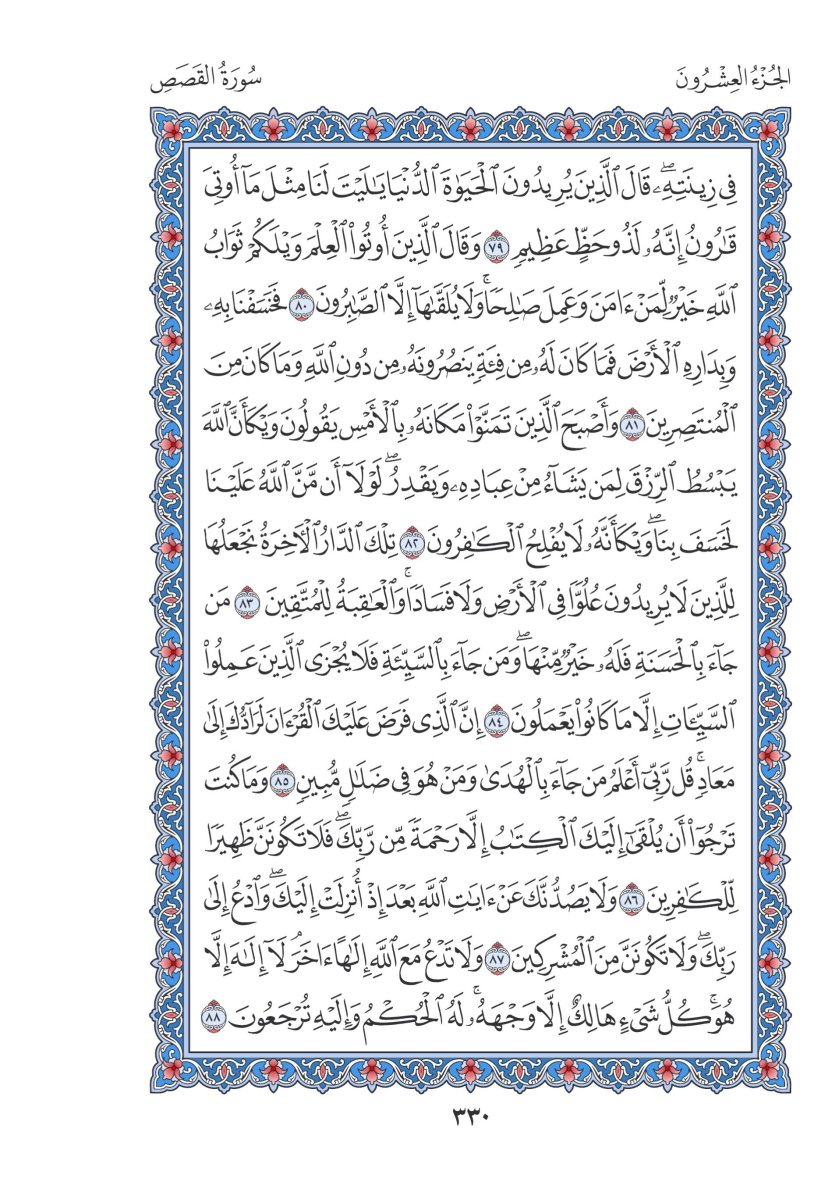 الجُزْءُ العِشْرُونَ
سُورَةُ القَصَصِ
فِي زِينَتِهِۦۖ قَالَ ٱلَّذِينَ يُرِيدُونَ ٱلْحَيَوٰةَ ٱلدُّنْيَا يَـٰلَيْتَ لَنَا مِثْلَ مَآ أُوتِىَ
قَـٰرُونُ إِنَّهُۥ لَذُو حَظٍّ عَظِيمٍ ٧٩ وَقَالَ ٱلَّذِينَ أُوتُوا۟ ٱلْعِلْمَ وَيْلَكُمْ ثَوَابُ
ٱللَّهِ خَيْرٌ لِّمَنْ ءَامَنَ وَعَمِلَ صَـٰلِحًاۚ وَلَا يُلَقَّىٰهَآ إِلَّا ٱلصَّـٰبِرُونَ ٨٠ فَخَسَفْنَا بِهِۦ
وَبِدَارِهِ ٱلْأَرْضَ فَمَا كَانَ لَهُۥ مِن فِئَةٍ يَنصُرُونَهُۥ مِن دُونِ ٱللَّهِ وَمَا كَانَ مِنَ
ٱلْمُنتَصِرِينَ ٨١ وَأَصْبَحَ ٱلَّذِينَ تَمَنَّوْا۟ مَكَانَهُۥ بِٱلْأَمْسِ يَقُولُونَ وَيْكَأَنَّ ٱللَّهَ
يَبْسُطُ ٱلرِّزْقَ لِمَن يَشَآءُ مِنْ عِبَادِهِۦ وَيَقْدِرُۖ لَوْلَآ أَن مَّنَّ ٱللَّهُ عَلَيْنَا
لَخَسَفَ بِنَاۖ وَيْكَأَنَّهُۥ لَا يُفْلِحُ ٱلْكَـٰفِرُونَ ٨٢ تِلْكَ ٱلدَّارُ ٱلْـَٔاخِرَةُ نَجْعَلُهَا
لِلَّذِينَ لَا يُرِيدُونَ عُلُوًّا فِى ٱلْأَرْضِ وَلَا فَسَادًاۚ وَٱلْعَـٰقِبَةُ لِلْمُتَّقِينَ ٨٣ مَن
جَآءَ بِٱلْحَسَنَةِ فَلَهُۥ خَيْرٌ مِّنْهَاۖ وَمَن جَآءَ بِٱلسَّيِّئَةِ فَلَا يُجْزَى ٱلَّذِينَ عَمِلُوا۟
ٱلسَّيِّـَٔاتِ إِلَّا مَا كَانُوا۟ يَعْمَلُونَ ٨٤ إِنَّ ٱلَّذِى فَرَضَ عَلَيْكَ ٱلْقُرْءَانَ لَرَآدُّكَ إِلَىٰ
مَعَادٍۚ قُل رَّبِّىٓ أَعْلَمُ مَن جَآءَ بِٱلْهُدَىٰ وَمَنْ هُوَ فِى ضَلَـٰلٍ مُّبِينٍ ٨٥ وَمَا كُنتَ
تَرْجُوٓا۟ أَن يُلْقَىٰٓ إِلَيْكَ ٱلْكِتَـٰبُ إِلَّا رَحْمَةً مِّن رَّبِّكَۖ فَلَا تَكُونَنَّ ظَهِيرًا
لِّلْكَـٰفِرِينَ ٨٦ وَلَا يَصُدُّنَّكَ عَنْ ءَايَـٰتِ ٱللَّهِ بَعْدَ إِذْ أُنزِلَتْ إِلَيْكَۖ وَٱدْعُ إِلَىٰ
رَبِّكَۖ وَلَا تَكُونَنَّ مِنَ ٱلْمُشْرِكِينَ ٨٧ وَلَا تَدْعُ مَعَ ٱللَّهِ إِلَـٰهًا ءَاخَرَۘ لَآ إِلَـٰهَ إِلَّا
هُوَۚ كُلُّ شَىْءٍ هَالِكٌ إِلَّا وَجْهَهُۥۚ لَهُ ٱلْحُكْمُ وَإِلَيْهِ تُرْجَعُونَ ٨٨
٣٣٠